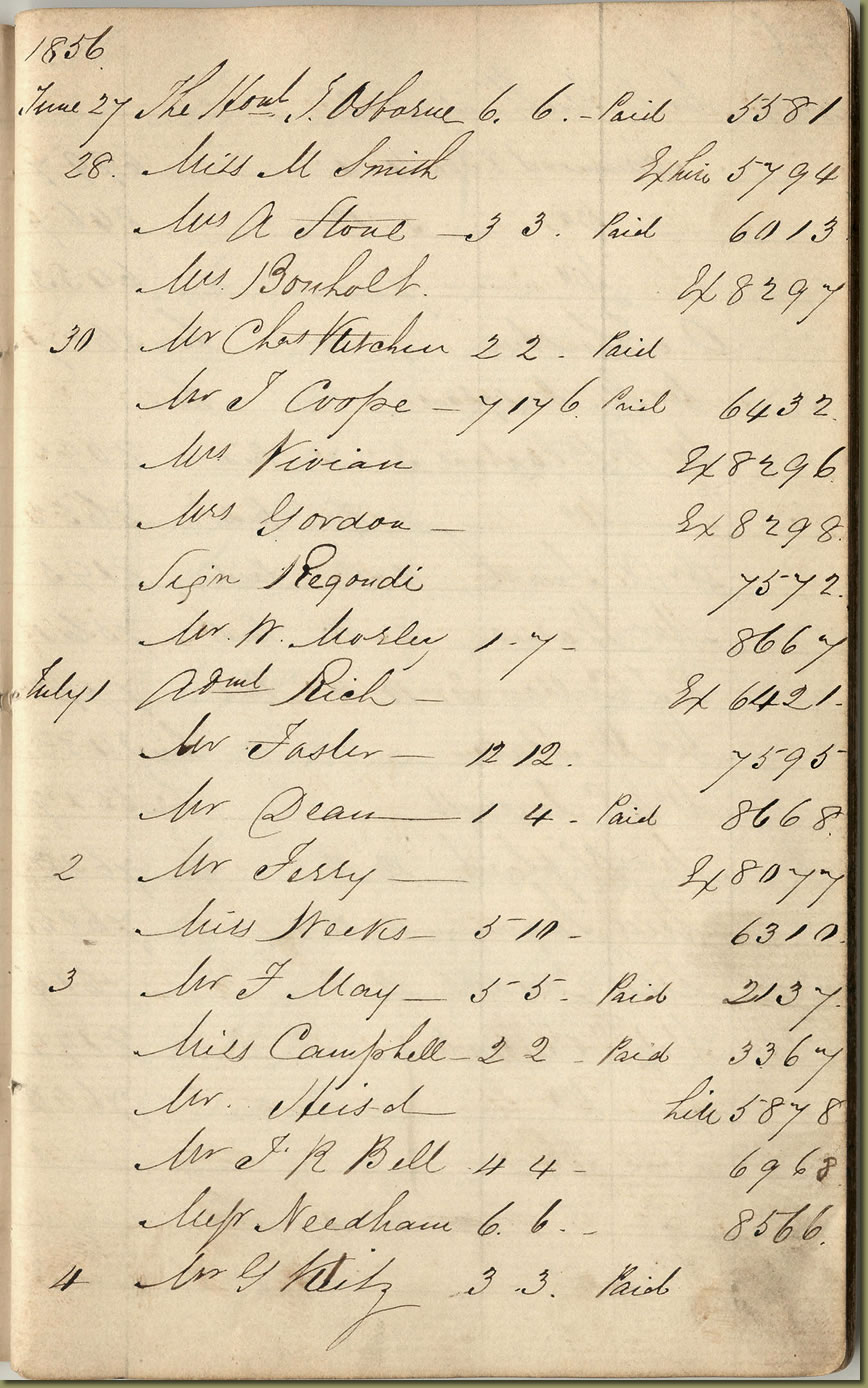 1856
June 27 The Honl. J. Osborne 6. 6. - Paid 5581
28. Miss M Smith Ex hire 5794
Mrs A Stone - 3 3. Paid 6013
Mrs. Bonholt. Ex 8297
30 Mr Chas Kitchen 2 2 - Paid
Mr J Coope - 7 17 6. Paid 6432.
Mrs Vivian Ex 8296.
Mrs Gordon - Ex 8298.
Sign Regondi 7572.
Mr. W. Mosley 1 - 7 - 8667
July 1 Adml Rich - Ex 6421 -
Mr Foster - 12 12. 7595
Mr Dean - 1 4 - Paid 8668.
2 Mr Terry - Ex 8077
Miss Weeks - 5 10 - 6310.
3 Mr F May - 5 5 - Paid 2137.
Miss Campbell - 2 2 - Paid 3367
Mr. hire 5878
Mr J. R Bell 4 4 - 6968.
Messr Needham 6. 6. - 8566.
4 Mr G 3 3. Paid